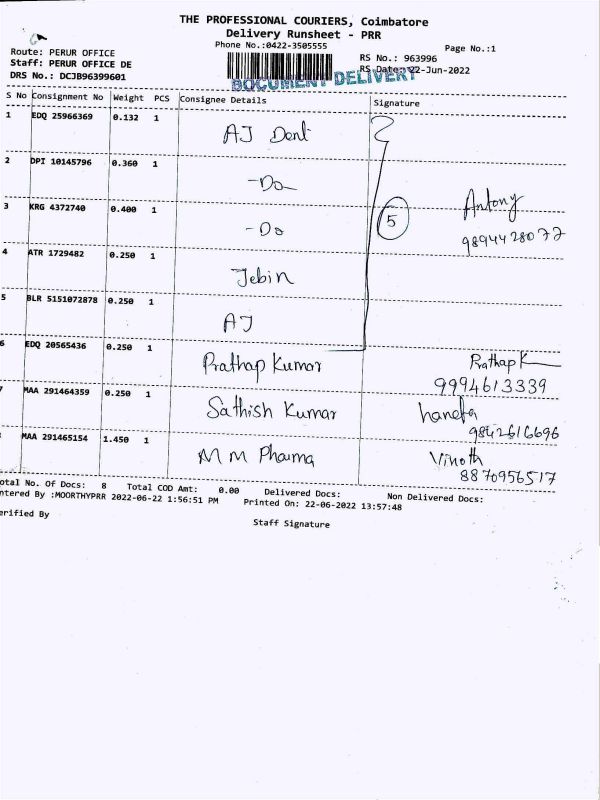 THE PROFESSIONAL COURIERS, Coimbatore
Delivery Runsheet - PRR
Phone No.:0422-3505555
Page No.:1
Route: PERUR OFFICE
RS No.: 963996
Staff: PERUR OFFICE DE
RS Date: 22-Jun-2022
DRS No.: DCJB96399601
DOCUMENT DELIVERY
S No Consignment No Weight PCS Consignee Details Signature
1 EDQ 25966369 0.132 1 AJ Dent
2 DPI 10145796 0.360 1 -Do
3 KRG 4372740 0.400 1 -Do 5 Antony
9894428072
4 ATR 1729482 0.250 1 Jebin
5 BLR 5151072878 0.250 1 AJ
6 EDQ 20565436 0.250 1 Prathap Kumar Prathap K
9994613339
7 MAA 291464359 0.250 1 Sathish Kumar hanefa
9842616696
MAA 291465154 1.450 1 M M Pharma Vinoth
8870956517
otal No. Of Docs: 8 Total COD Amt: 0.00 Delivered Docs: Non Delivered Docs:
ntered By :MOORTHYPRR 2022-06-22 1:56:51 PM Printed On: 22-06-2022 13:57:48
erified By
Staff Signature